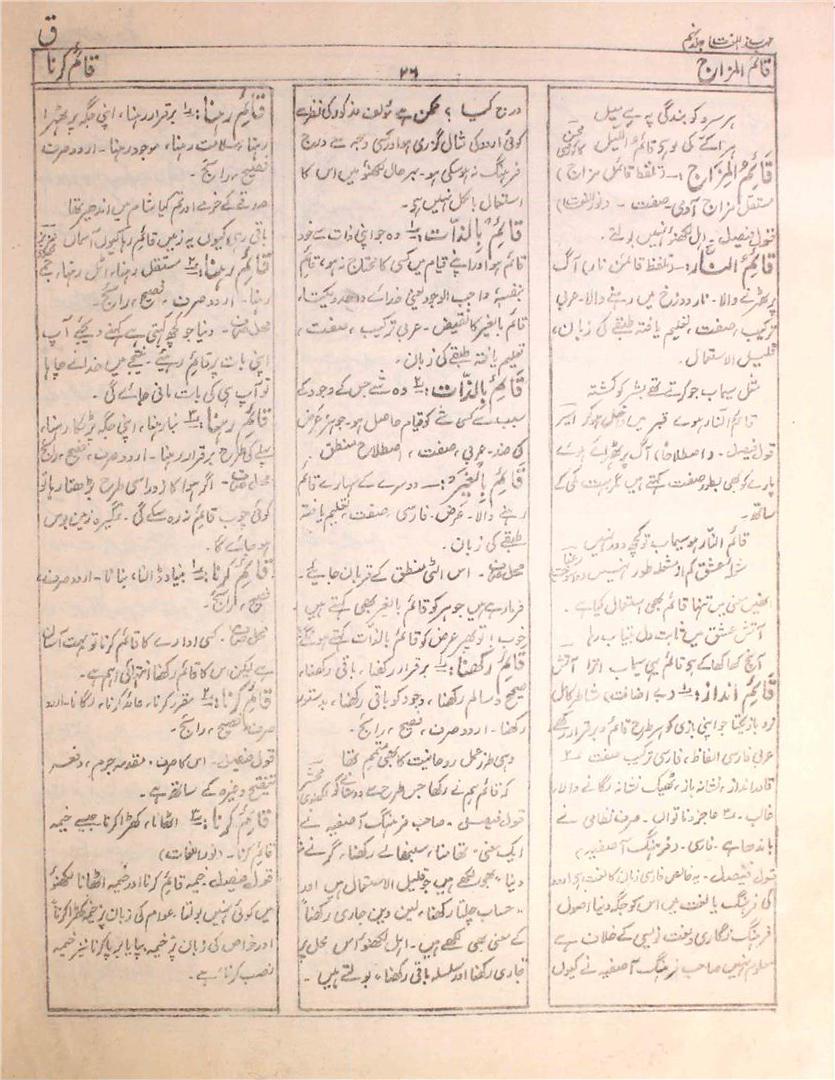 مہذب اللغات جلد نہم
ق
قائم المزاج
۲۶
قائم کرنا
ہر سرو کو بندگی پہ ہے میل
ہر اک کے کی لو ہے قائم اللیل
قَائِمُ المِزَاج :۔ (تلفظ قائمل مزاج)
مستقل مزاج آدمی۔ صفت ۔ (نور اللغات)
قول فیصل۔ اہل لکھنؤ نہیں بولتے۔
قَائِمُ النَّار :۔ (تلفظ قائمن نار) آگ
پر ٹھہرنے والا۔ نار دوزخ میں رہنے والا۔ عربی
ترکیب، صفت، تعلیم یافتہ طبقے کی زبان،
قلیل الاستعمال۔
مثل سیماب جو کرتے تھے بشر کو کشتہ
قائم النار ہوئے قبر میں داخل ہو کر اسیر
قول فیصل۔ (اصطلاحاً) آگ پر ٹھہرائے ہوئے
پارے کو بھی بطور صفت کہتے ہیں
ساتھ۔
قائم النار ہو سیماب تو کچھ دور نہیں
شعلۂ عشق کم از شعلۂ طور نہیں
انھیں معنی میں تنہا قائم بھی استعمال کیا ہے۔
آتش عشق میں ثابت دل بیتاب رہا
آنچ کھا کھا کے ہو قائم یہی سیماب اترا آتش
قَائِم اَنداز :۔ ۱؎ (بے اضافت) شاطر کامل
نرد باز یکتا جو اپنی بازی کو ہر طرح قائم و برقرار رکھے
عربی فارسی الفاظ، فارسی ترکیب صفت ۲؎
قادر انداز، نشانہ باز، ٹھیک نشانہ لگانے والا،
غالب۔ ۳؎ عاجز و ناتواں۔ صرف نظامی نے
باندھا ہے۔ فارسی۔ (فرہنگ آصفیہ)
قول فیصل۔ یہ خالص فارسی زبان کا لغت ہے اردو
کی فرہنگ یا لغت میں اس کو جگہ دینا اصول
فرہنگ نگاری و لغت نویسی کے خلاف ہے
معلوم نہیں صاحب فرہنگ آصفیہ نے کیوں
درج کیا ؟ ممکن ہے مؤلف مذکور کی نظر سے
کوئی اردو کی مثال گزری ہو اور کسی وجہ سے درج
فرہنگ نہ ہو سکی ہو۔ بہرحال لکھنؤ میں اس کا
استعمال بالکل نہیں ہے۔
قَائِم بِالذّات :۔ ۱؎ وہ جو اپنی ذات سے خود
قائم ہو اور اپنے قیام میں کسی کا محتاج نہ ہو، قائم
بنفسہٖ واجب الوجود یعنی خدائے واحد و یکتا،
قائم بالغیر کا نقیض۔ عربی ترکیب، صفت،
تعلیم یافتہ طبقے کی زبان۔
قَائِم بِالذّات :۔ ۲؎ وہ شے جس کے وجود کے
سبب سے کسی شے کو قیام حاصل ہو۔ جوہر عرض
کی ضد۔ عربی، صفت، اصطلاح منطق۔
قَائِم بِالغَیر :۔ دوسرے کے سہارے قائم
رہنے والا۔ عرض۔ فارسی۔ صفت، تعلیم یافتہ
طبقے کی زبان۔
محل صرف۔ اس الٹی منطق کے قربان جایئے۔
فرما رہے ہیں جوہر کو قائم بالغیر بھی کہتے ہیں
خوب! تو پھر عرض کو قائم بالذات کہتے ہوں گے
قَائِم رَکھنا :۔ ۱؎ برقرار رکھنا، باقی رکھنا،
صحیح و سالم رکھنا، وجود کو باقی رکھنا، بدستور
رکھنا۔ اردو صرف، فصیح، رائج۔
وہی طرز عمل روحانیت کا بھی متمم تھا
کہ قائم ہم نے رکھا جس طرح سے محشر لکھنوی
قول فیصل۔ صاحب فرہنگ آصفیہ نے
ایک معنی، تھامنا، سنبھالے رکھنا، گرنے نہ
دینا، بھی لکھے ہیں جو قلیل الاستعمال ہیں اور
"حساب چلتا رکھنا، لین دین جاری رکھنا"
کے معنی بھی لکھے ہیں۔ اہل لکھنؤ اس محل پر
جاری رکھنا اور سلسلہ باقی رکھنا، بولتے ہیں۔
قَائِم رَہنا :۔ ۱؎ برقرار رہنا، اپنی جگہ پر ٹھہرا
رہنا، سلامت رہنا، موجود رہنا۔ اردو صرف
فصیح، رائج۔
صدقے کے خرمے اور تم کیا شام میں اندھیر تھا
باقی رہی کیوں یہ زمیں قائم رہا کیوں آسماں
قَائِم رَہنا :۔ ۲؎ مستقل رہنا، اٹل رہنا، جمے
رہنا۔ اردو صرف، فصیح، رائج۔
محل صرف۔ دنیا جو کچھ کہتی ہے کہنے دیجئے آپ
اپنی بات پر قائم رہئے۔ نتیجے میں خدا نے چاہا
تو آپ ہی کی بات مانی جائے گی۔
قَائِم رَہنا :۔ ۳؎ بنا رہنا، اپنی جگہ پر ٹکا رہنا،
پہلے کی طرح برقرار رہنا۔ اردو صرف، فصیح، رائج
محل صرف۔ اگر ہوا کا زور اسی طرح بڑھتا رہا تو
کوئی چوب قائم نہ رہ سکے گی۔ نمگیرہ زمین بوس
ہو جائے گا۔
قَائِم کَرنا :۔ ۱؎ بنیاد ڈالنا، بنانا۔ اردو صرف،
فصیح، رائج۔
محل صرف۔ کسی ادارے کا قائم کرنا تو بہت آسان
ہے لیکن اس کا قائم رکھنا انتہائی اہم ہے۔
قَائِم کَرنا :۔ ۲؎ مقرر کرنا، عائد کرنا، لگانا۔ اردو
صرف، فصیح، رائج۔
قول فیصل۔ اس کا صرف، مقدمہ، جرم، دفعہ
تنقیح وغیرہ کے ساتھ ہے۔
قَائِم کَرنا :۔ ۳؎ اٹھانا، کھڑا کرنا جیسے خیمہ
قائم کرنا۔ (نور اللغات)
قول فیصل۔ خیمہ قائم کرنا اور خیمہ اٹھانا لکھنؤ
میں کوئی نہیں بولتا۔ عوام کی زبان پر خیمہ کھڑا کرنا
اور خواص کی زبان پر خیمہ بپا یا برپا کرنا نیز خیمہ
نصب کرنا ہے۔